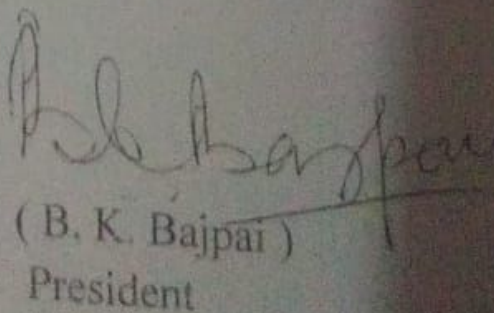 Bk Bajpai
( B. K. Bajpai )
President